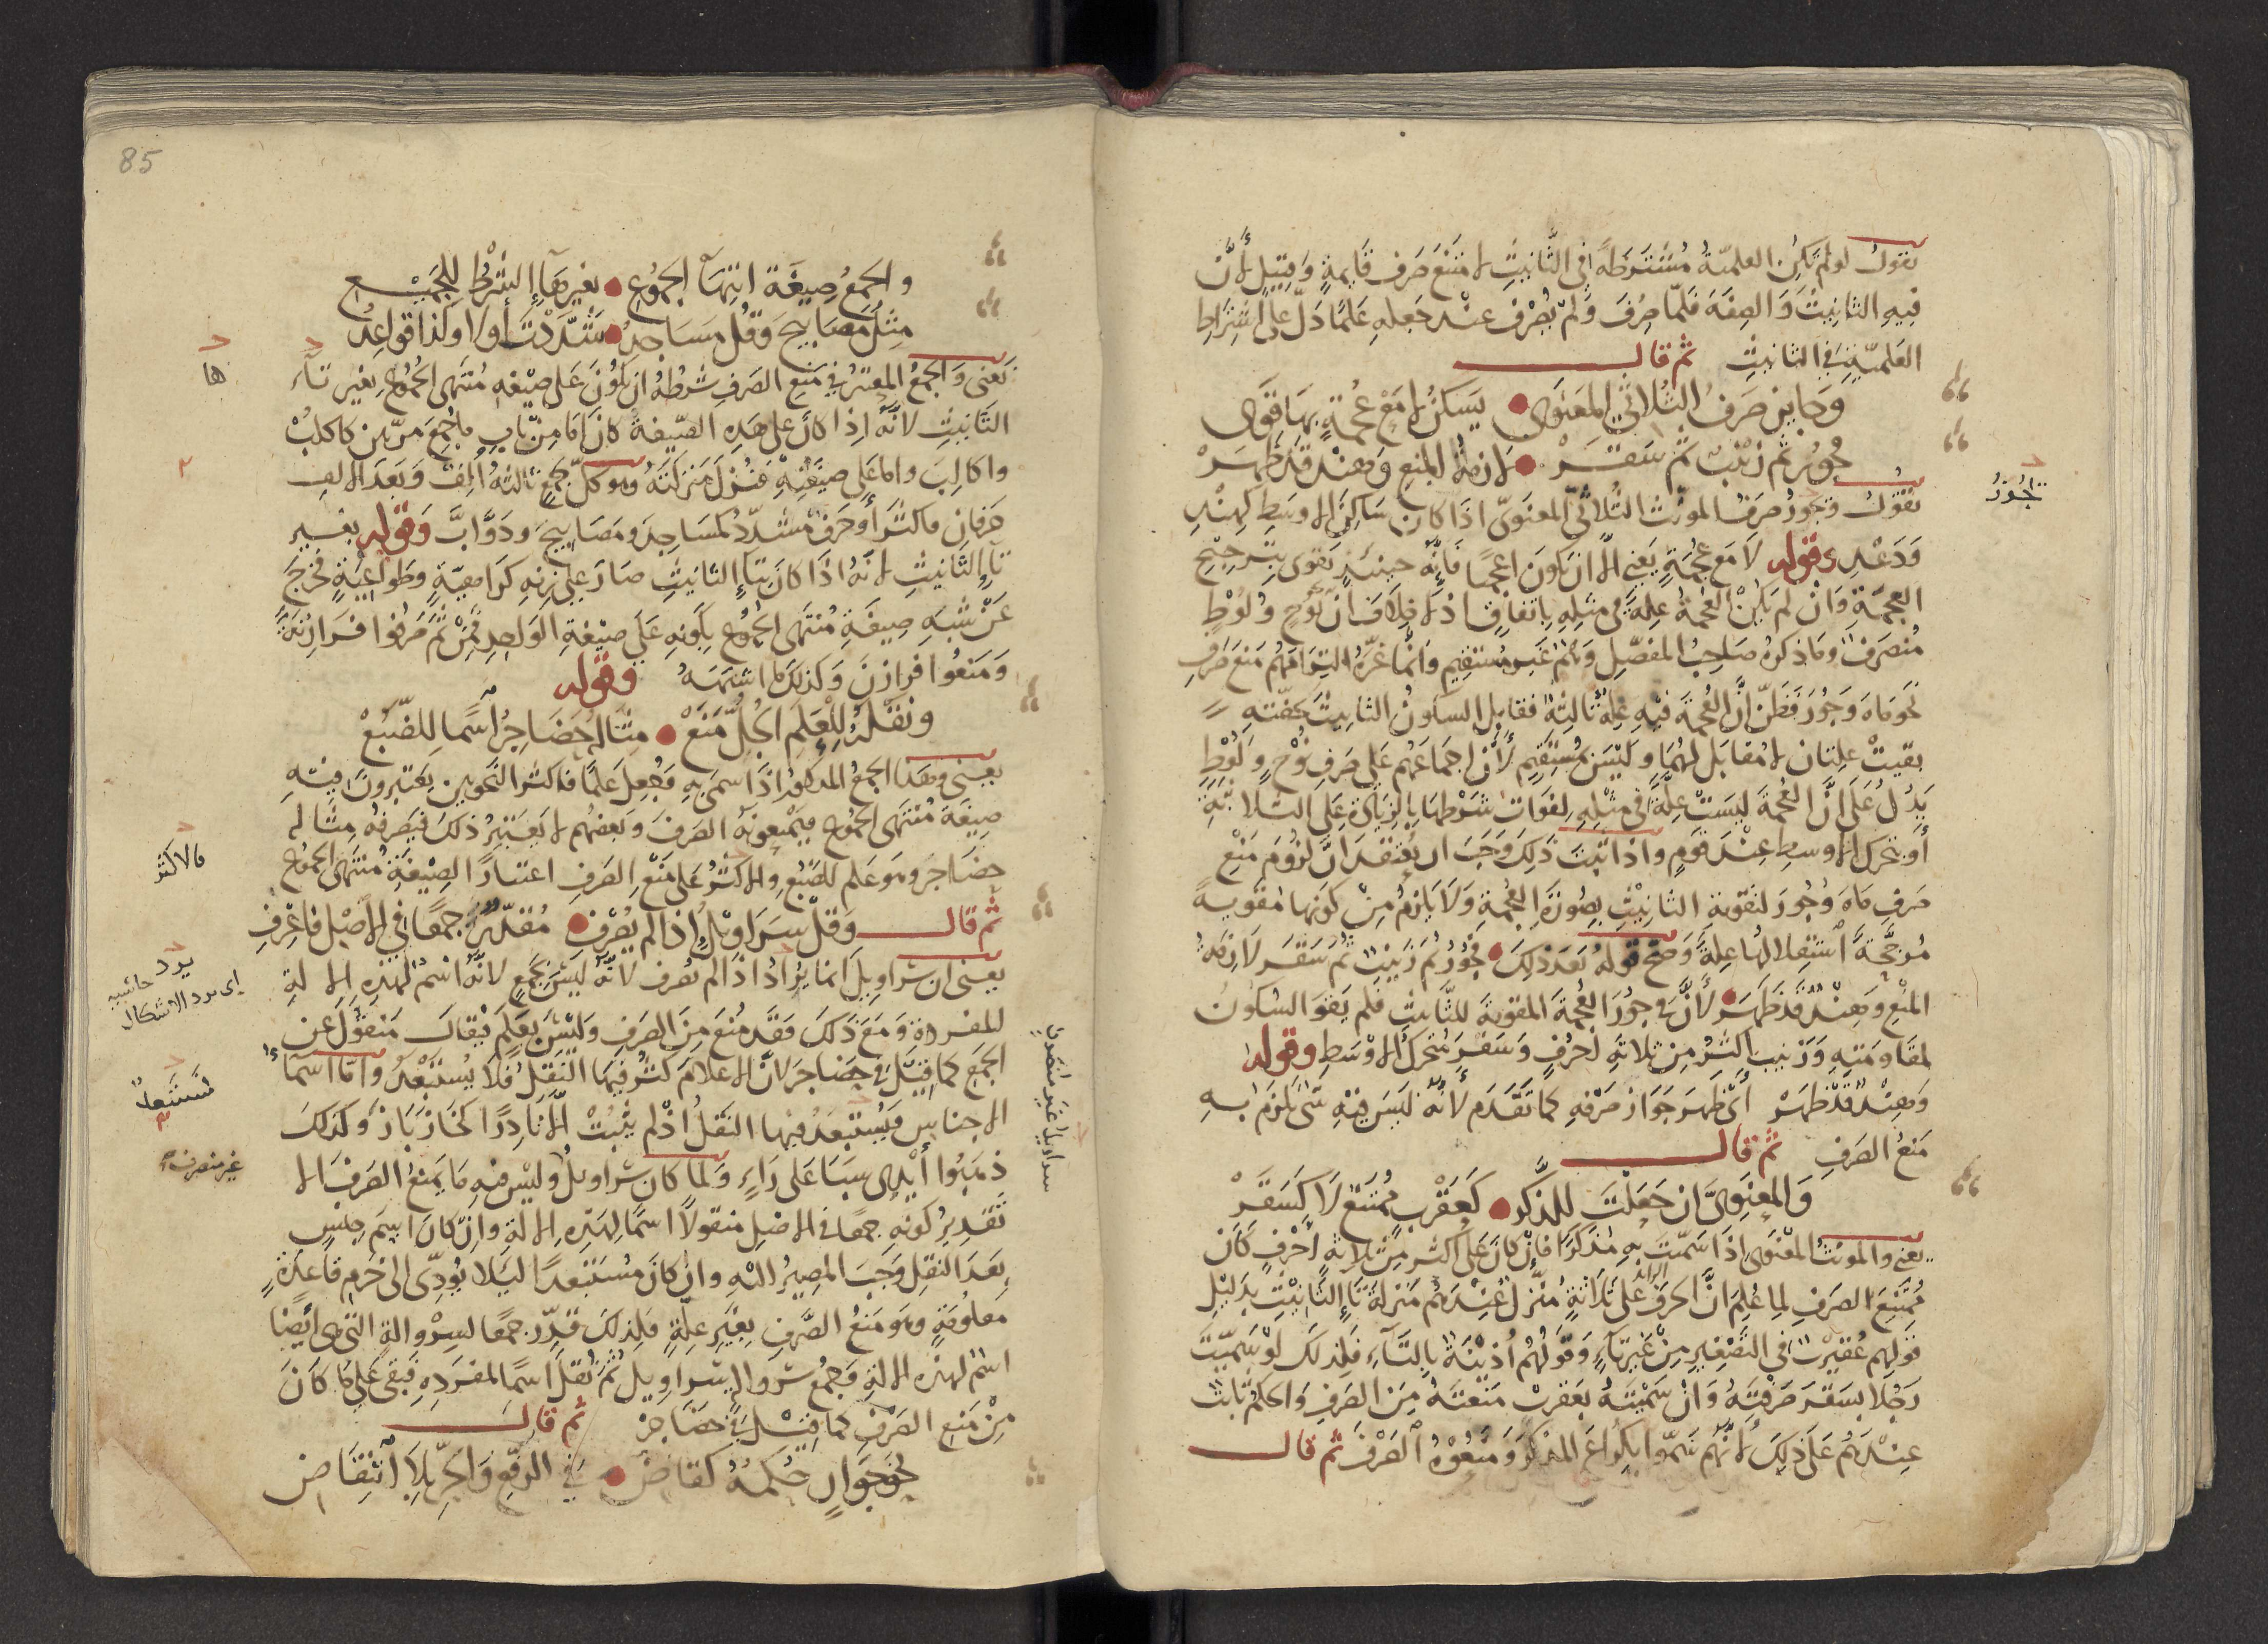 نقول لو لم تكن العلمية مشترطة في التانيث لامتنع صرف قايمة وقتيل لان
فيه التانيث والصفة فلما صرف ولم يصرف عند جعله علما دل على اشتراط
العلمية في التانيث ثم قال
وجايز صرف الثلاثي المعنوي يسكن لا مع عجمة بها قوي
جور ثم زينب ثم سقر لازمة المنع وهند قد ظهر
نقول وتجوز صرف المونث الثلاثي المعنوي اذا كان ساكن الاوسط كهند
تجوز
ودعد وقوله لا مع عجمة يعني الا ان يكون اعجميا فانه حينئذ يقوى بترجيح
العجمة وان لم يكن العجمة علة في مثله باتفاق اذ لا خلاف ان نوح ولوط
منصرف وما ذكره صاحب المفصل وهم غير مستقيم وانما غره التزامهم منع صرف
نحو ماه وجور فظن ان العجمة فيه علة ثالثة فقابل السكون التانيث بخفته
بقيت علتان لا مقابل لهما وليس بمستقيم لان اجماعهم على صرف نوح ولوط
يدل على ان العجمة ليست علة في مثله لفوات شرطها بالزيادة على الثلاثة
او بتحرك الاوسط عند قوم واذا ثبت ذلك وجب ان يعتقد ان لزوم منع
صرف ماه وجور لتقوية التانيث بصورة العجمة ولا يلزم من كونها مقوية
مرجحة استقلالها علة وصح قوله بعد ذلك فجور ثم زينب ثم سقر لازمة
المنع وهند قد ظهر لان في جور العجمة المقوية للتانيث فلم يقو السكون
لمقاومته وزينب اكثر من ثلاثة احرف وسقر متحرك الاوسط وقوله
وهند قد ظهر اي ظهر جواز صرفه كما تقدم لانه ليس فيه شي يلزم به
منع الصرف ثم قال
والمعنوي ان جعلت للمذكر كعقرب ممتنع لا كسقر
يعني والمونث المعنوي اذا سميت به مذكرا فان كان على اكثر من ثلاثة احرف كان
ممتنع الصرف لما علم ان الحرف الزائد على ثلاثة منزل عندهم منزلة تا التانيث بدليل
قولهم عقيرب في التصغير من غير تاء وقولهم اذينة بالتاء فلذلك لو سميت
رجلا بسقر صرفته وان سميته بعقرب منعته من الصرف والحكم ثابت
عندهم على ذلك لانهم سموا بكراع المذكر ومنعوه الصرف ثم قال
85
والجمع صيغة انتها الجموع بغيرها الشرط للجميع
مثل مصابيح وقل مساجد شددت اولا وكذا قواعد
يعني والجمع المعتبر في منع الصرف شرطه ان يكون على صيغه منتهى الجموع بغير تاء
ها
التانيث لانه اذا كان على هذه الصيغة كان اما من باب ما جمع مرتين كاكلب
واكالب واما على صيغته فنزل منزلته وهو كل جمع ثالثه الف وبعد الالف
حرفان فاكثر او حرف مشدد كمساجد ومصابيح ودواب وقوله بغير
تاء التانيث لانه اذا كان بتاء التانيث صار على زنه كراهية وطواعية فخرج
عن شبه صيغة منتهى الجموع بكونه على صيغة الواحد فمن ثم صرفوا فرازنة
ومنعوا فرازن وكذلك ما اشبهه وقوله
ونقله للعلم الجل منع مثاله حضاجر اسما للضبع
يعني وهذا الجمع المذكور اذا سمي به فجعل علما فاكثر النحويين يعتبرون فيه
صيغة منتهى الجموع فيمنعونه الصرف وبعضهم لا يعتبر ذلك فيصرفه مثاله
حضاجر وهو علم للضبع والاكثر على منع الصرف اعتبارا لصيغة منتهى الجموع
فالاكثر
ثم قال وقل سراويل اذا لم يصرف مقدر جمعا في الاصل فاعرف
يعني ان سراويل انما يراد اذا لم يصرف لانه ليس بجمع لانه اسم لهذه الالة
يرد حاشيه
اي يرد الاشكال
المفردة ومع ذلك فقد منع من الصرف وليس بعلم فيقال منقول عن
الجمع كما قيل في حضاجر لان الاعلام كثر فيها النقل فلا يستبعد واما اسماء
الاجناس فيستبعد فيها النقل اذ لم يثبت الا نادرا كخازباز وكذلك
ذهبوا ايدي سبا على راء ولما كان سراويل وليس فيه ما يمنع الصرف الا
غير منصرف
سراويل غير منصرف
تقدير كونه جمعا في الاصل منقولا اسما لهذه الالة وان كان اسم جنس
بعد النقل وجب المصير اليه وان كان مستبعدا ليلا يودي الى خرم قاعدة
معلومة وهو منع الصرف بغير علة فلذلك قدر جمعا لسروالة التي هي ايضا
اسم لهذه الالة فجمع سروالة سراويل ثم نقل اسما لمفرده فبقي على ما كان
من منع الصرف كما قيل في حضاجر ثم قال
نحو جوار حكمه كقاض في الرفع والجر بلا انتقاض